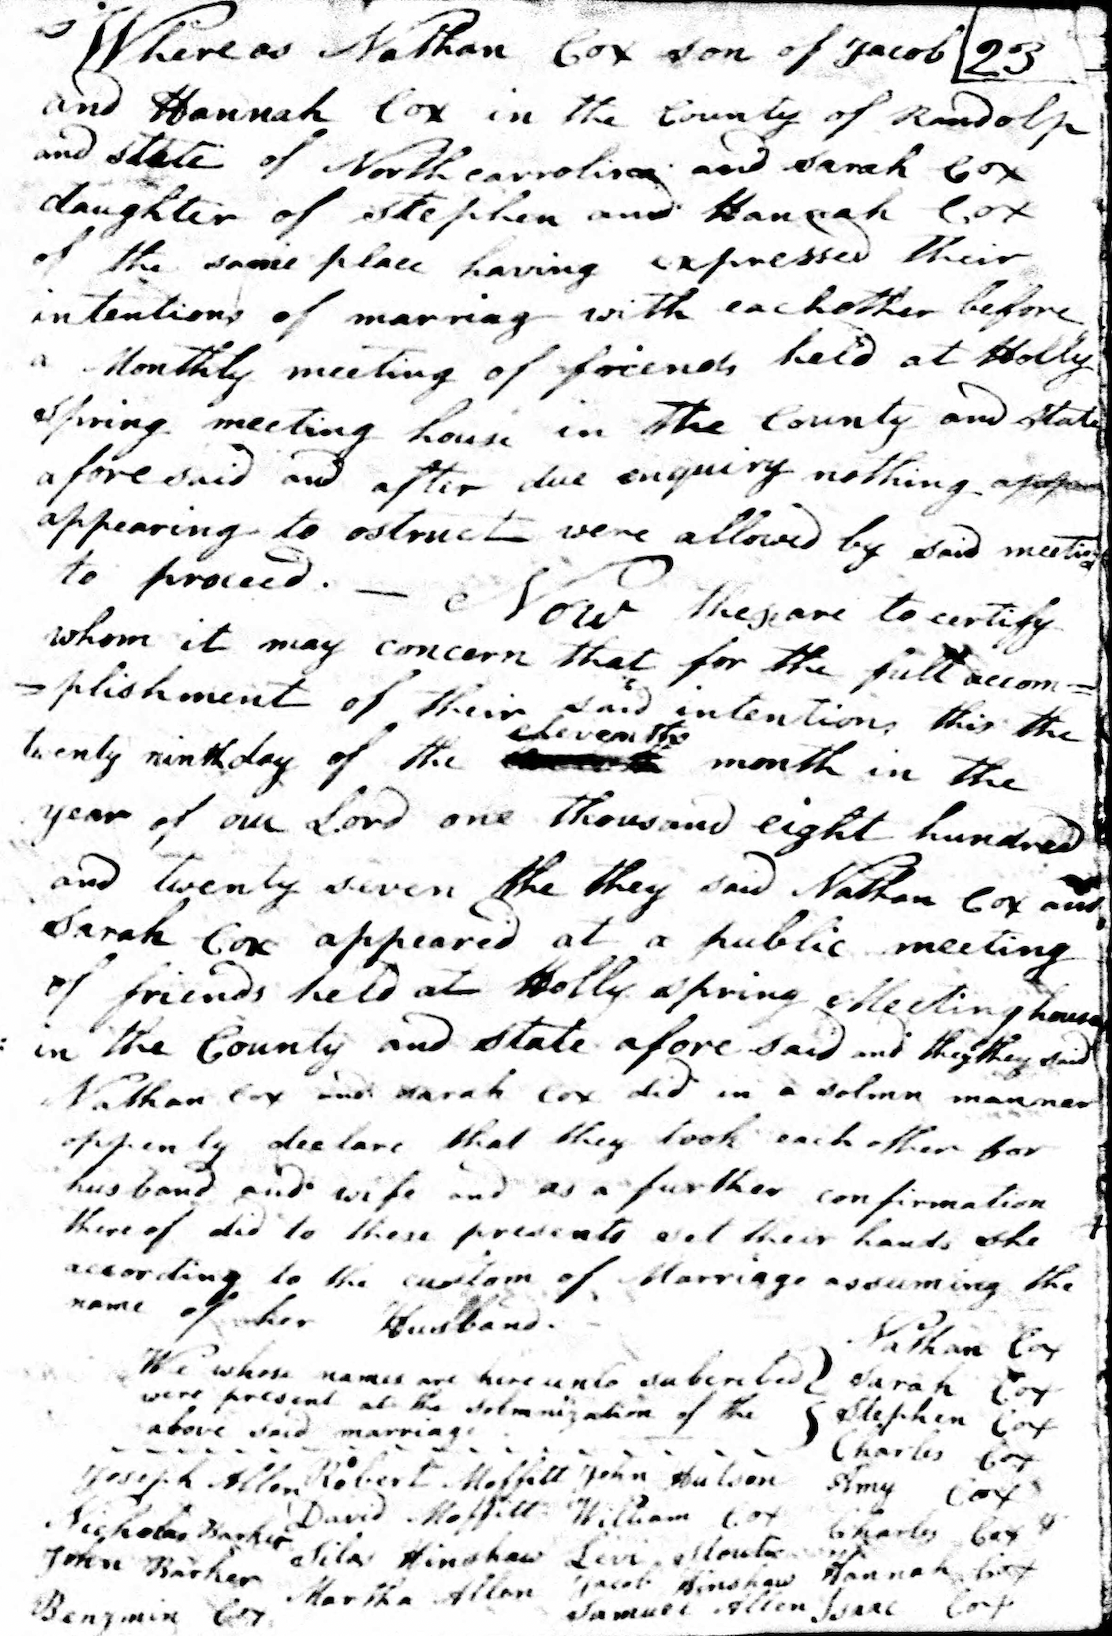 Whereas Nathan Cox son of Jacob 23
and Hannah Cox in the County of Randolp
and state of Northcarrolina and Sarah Cox
daughter of Stephen and Hannah Cox
of the same place having expressed their
intentions of marriag with eachother before
a Monthly meeting of friends held at Holly
spring meeting house in the County and state
afore said and after due enquiry nothing appear
appearing to ostruct were allowed by said meeting
to proceed. — Now these are to certify
whom it may concern that for the full accom=
=plishment of their said intentions this the
eleventh
twenty ninth day of the month in the
year of our Lord one thousand eight hundred
and twenty seven the they said Nathan Cox and
Sarah Cox appeared at a public meeting
of friends held at Holly spring Meeting house
in the County and state afore said and they they said
Nathan Cox and Sarah Cox did in a solmn manner
oppenly declare that they took each other for
husband and wife and as a further confirmation
there of did to these presents set their hands she
according to the custom of Marriage assuming the
name of her Husband.
Nathan Cox
We whose names are here unto subcribed Sarah Cox
were present at the solmnization of the Stephen Cox
above said marriage Charles Cox
Joseph Allen Robert Moffitt John Hutson Amy Cox
Nicholas Barker David Moffitt William Cox Charles Cox
John Barker Silas Hinshaw Levi Stout Hannah Cox
Benjmin Cox Martha Allen Jacob Hinshaw Isaac Cox
Samuel Allen